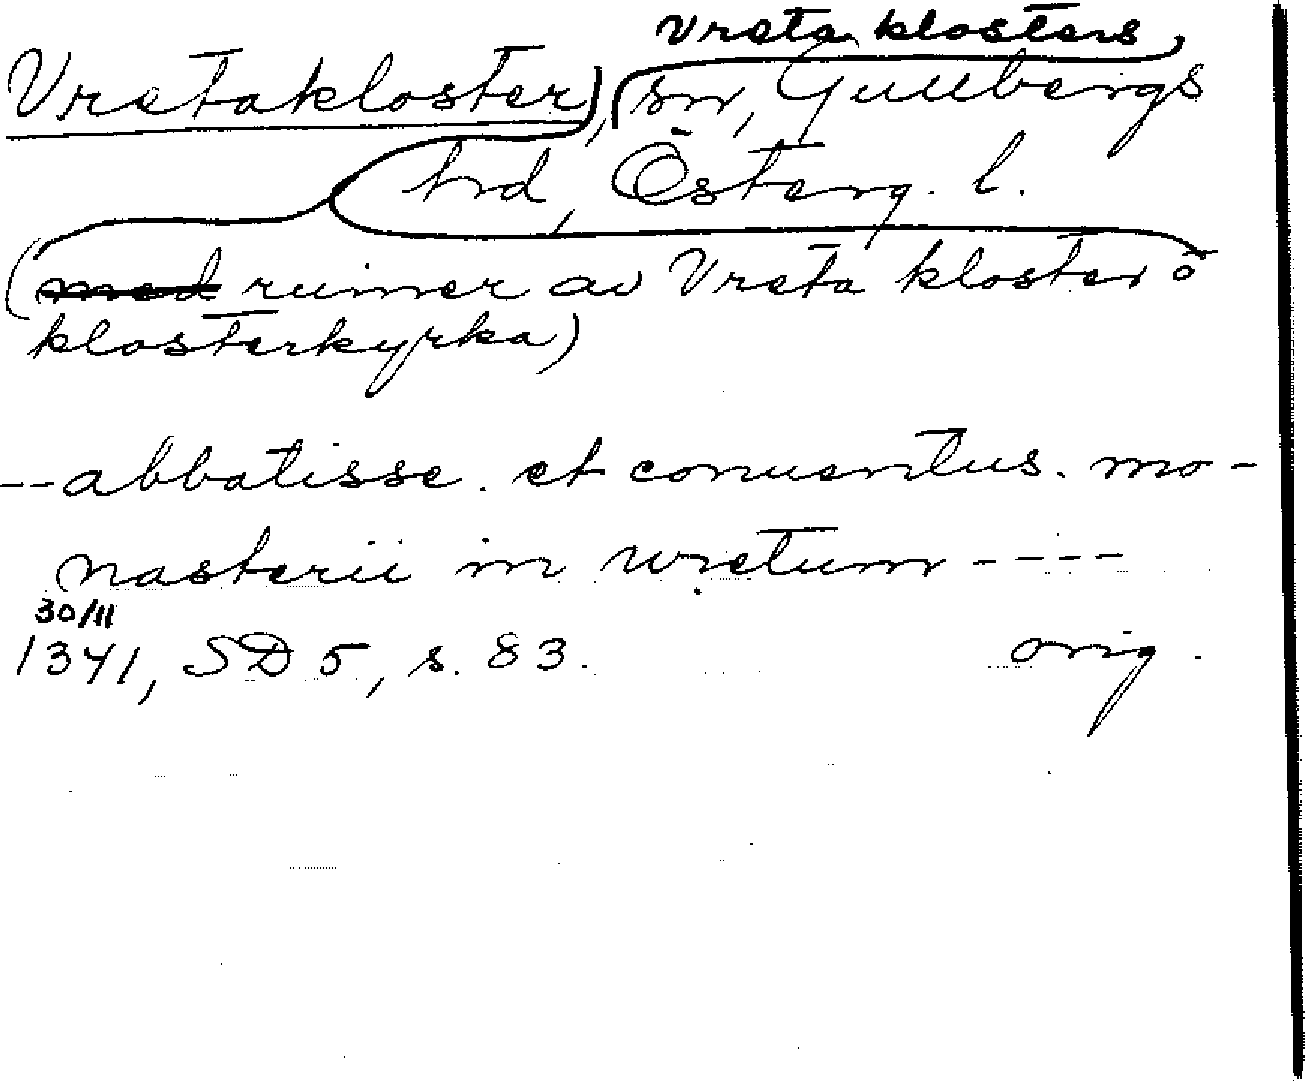 Vreta klosters
Vretakloster, sn, Gullbergs
hd, Österg. l.
(med ruiner av Vreta kloster o
klosterkyrka)
--abbatisse. et conuentus. mo-
nasterii in wretum ----
30/11
1341, SD 5, s. 83. orig.